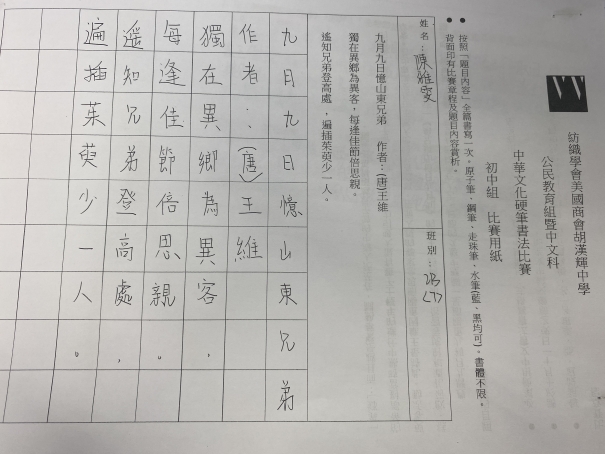 紡織學會美國商會胡漢輝中學
公民教育組暨中文科
中華文化硬筆書法比賽
初中組　比賽用紙
● 按照「題目內容」全篇書寫一次，原子筆、鋼筆、走珠筆、水筆(藍、黑均可)，書體不限。
● 背面印有比賽章程及題目內容賞析。
姓名：陳雅雯　班別：2B(7)
九月九日憶山東兄弟　作者：(唐)王維
獨在異鄉為異客，每逢佳節倍思親。
遙知兄弟登高處，遍插茱萸少一人。
九月九日憶山東兄弟
作者：(唐)王維
獨在異鄉為異客，
每逢佳節倍思親。
遥知兄弟登高處，
遍插茱萸少一人。